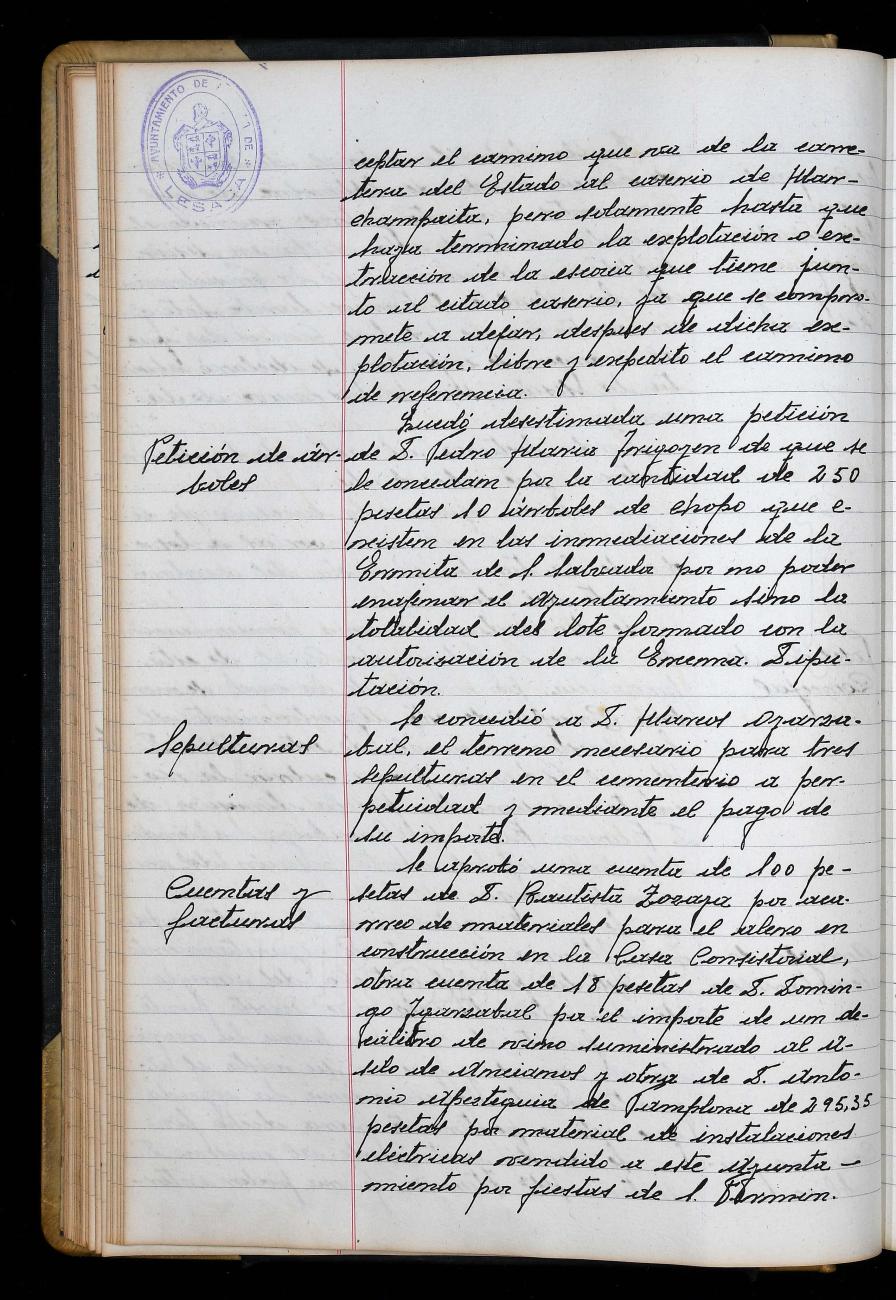 AYUNTAMIENTO DE
DE
LESACA
ceptar el camino que va de la carre-
tera del Estado al caserio de Mar-
champaita, pero solamente hasta que
haya terminado la explotación o ex-
tracción de la escoria que tiene jun-
to al citado caserio, ya que se compro-
mete a dejar, despues de dicha ex-
plotación, libre y expedito el camino
de referencia.
Quedó desestimada una petición
Petición de ár-
boles
de D. Pedro Maria Yrigoyen de que se
le concedan por la cantidad de 250
pesetas 10 árboles de chopo que e-
xisten en las inmediaciones de la
Ermita de S. Salvador por no poder
enajenar el Ayuntamiento sino la
totalidad del lote formado con la
autorización de la Excma. Dipu-
tación.
Se concedió a D. Marcos Ogarza-
Sepulturas
bal, el terreno necesario para tres
sepulturas en el cementerio a per-
petuidad y mediante el pago de
su importe.
Se aprobó una cuenta de 100 pe-
Cuentas y
facturas
setas de D. Bautista Zozaya por aca-
rreo de materiales para el alero en
construcción en la Casa Consistorial,
otra cuenta de 18 pesetas de D. Domin-
go Ygarzabal por el importe de un de-
cálitro de vino suministrado al A-
silo de Ancianos y otra de D. Anto-
nio Apesteguia de Pamplona de 295,35
pesetas por material de instalaciones
eléctricas vendido a este Ayunta-
miento por fiestas de S. Fermin.